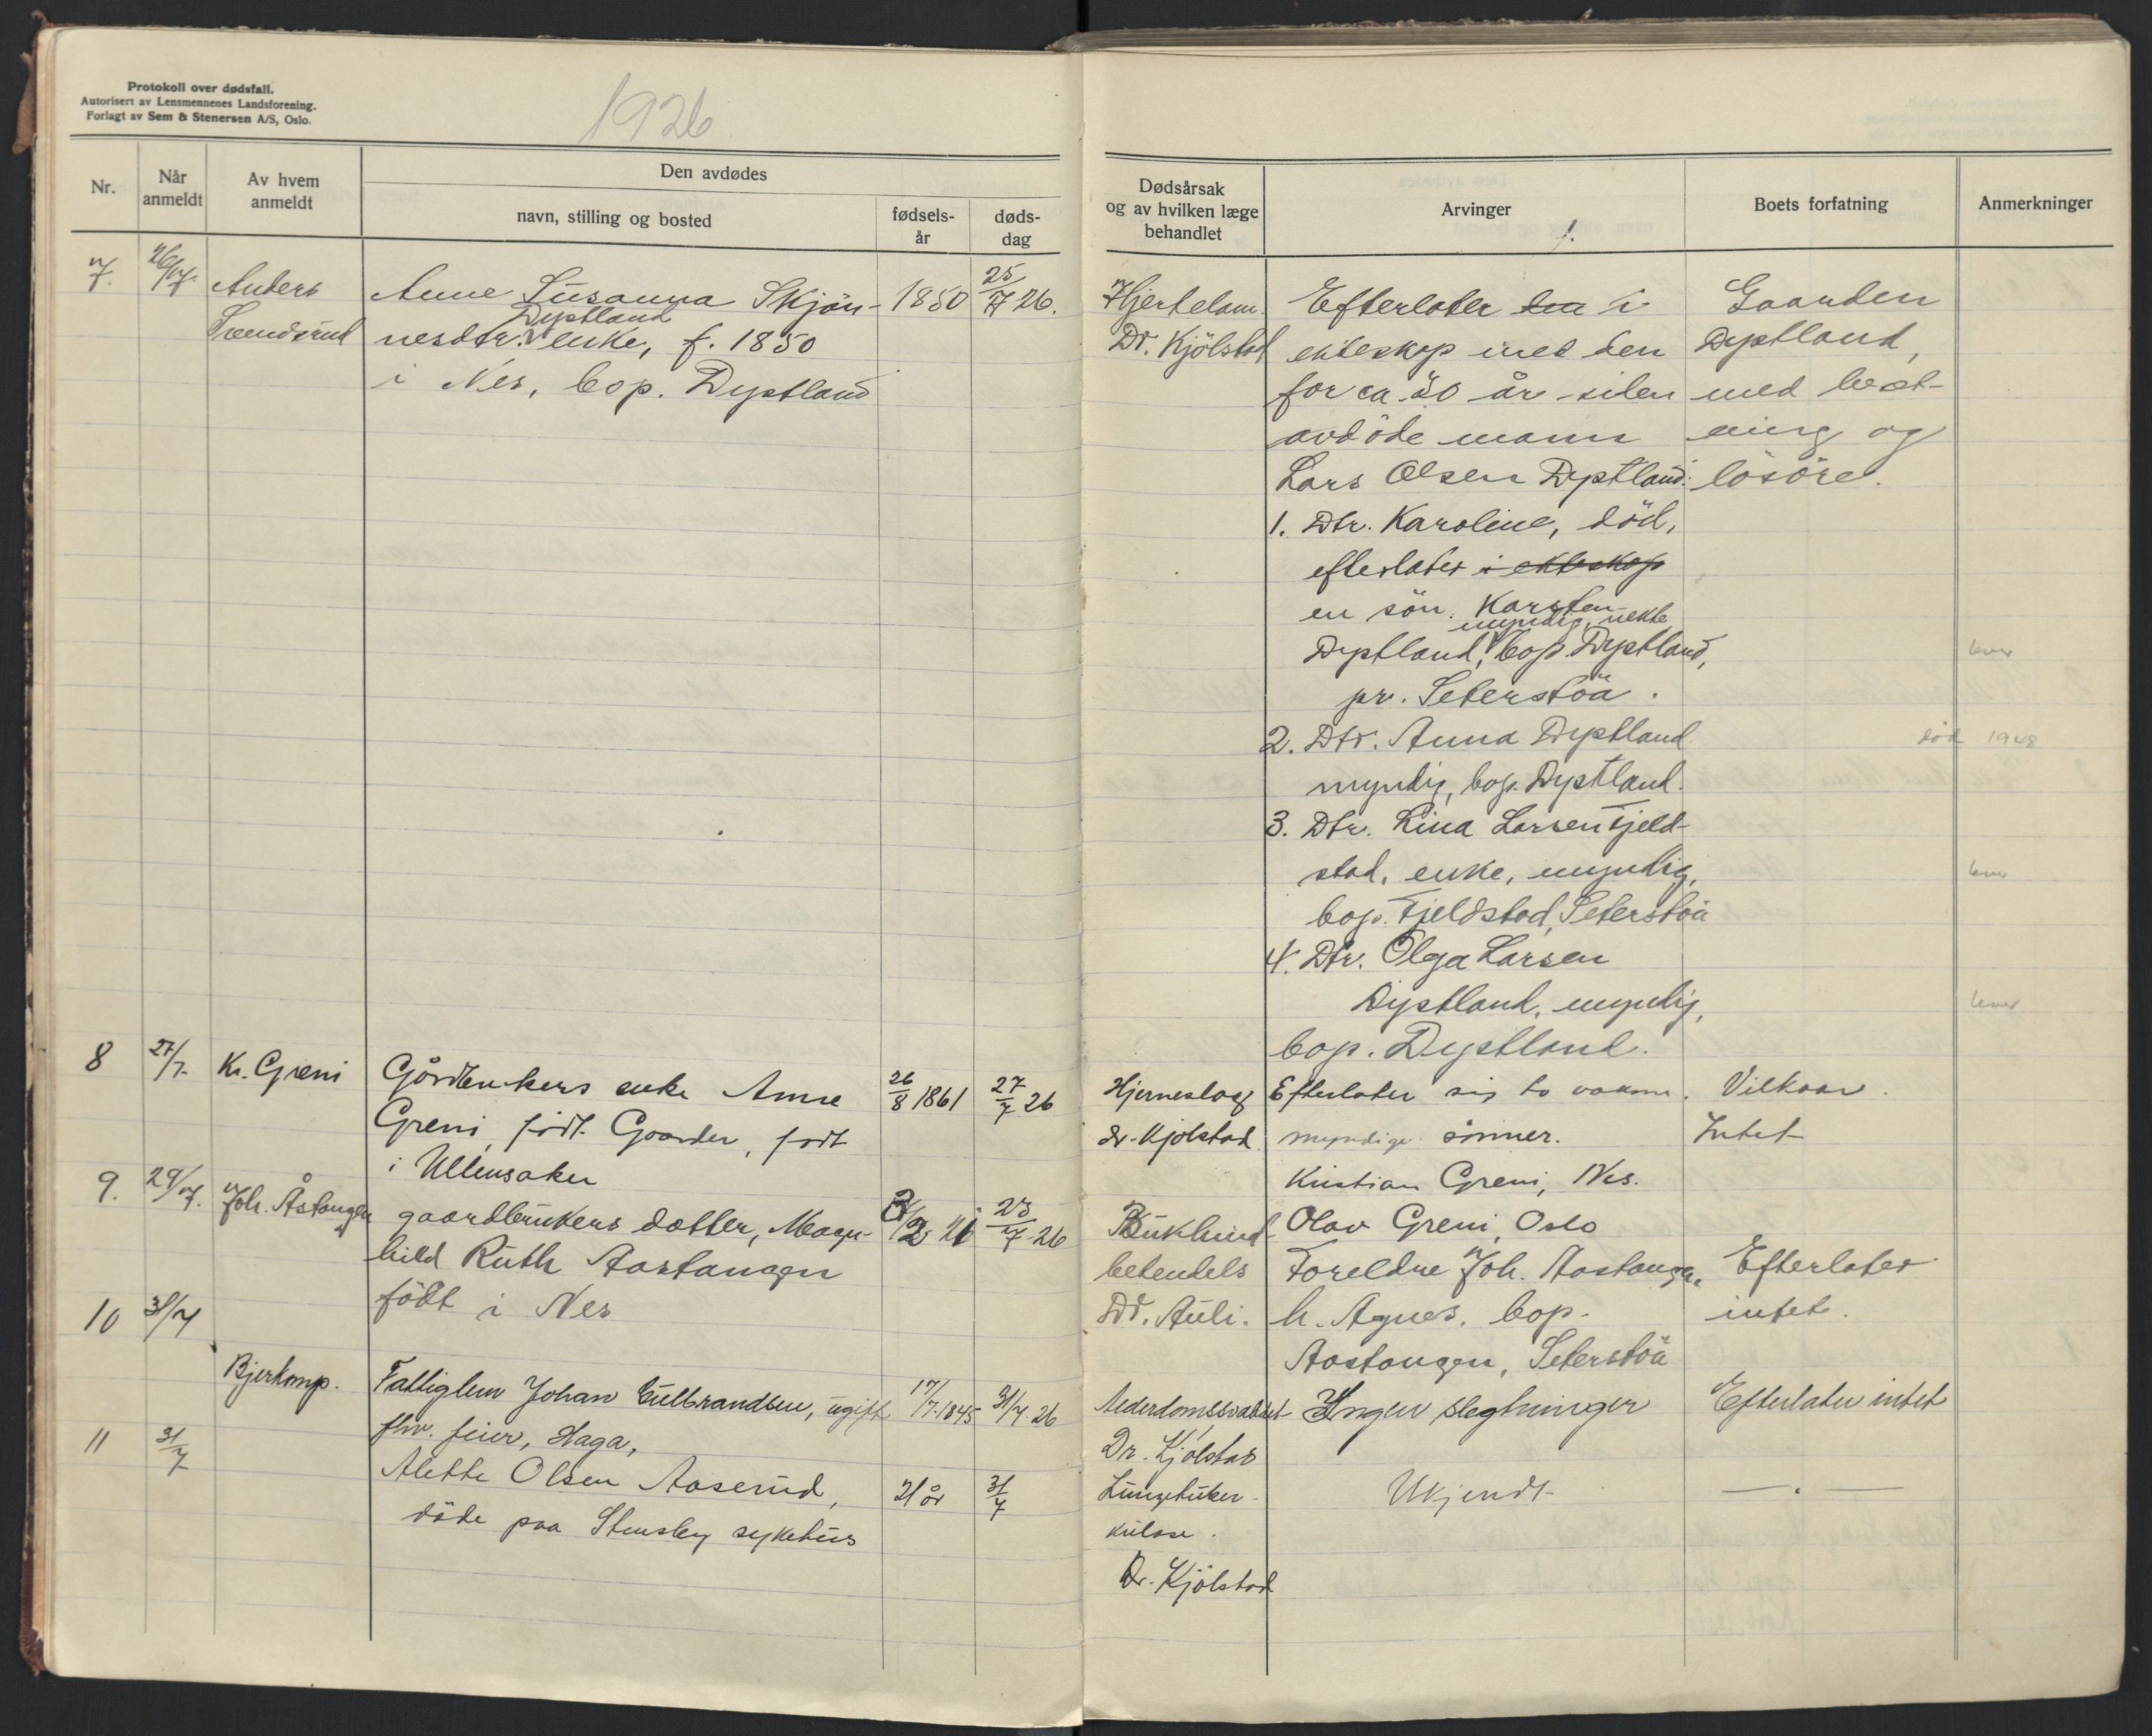 Protokoll over dødsfall.
Autorisert av Lensmennenes Landsforening.
Forlagt av Sem & Stenersen A/S, Oslo.
1926
Nr.
Når anmeldt
Av hvem anmeldt
Den avdødes
navn, stilling og bosted
fødsels-
år
døds-
dag
7. 26/7. Anders
Svendsrud
Anne Susanna Skjön- 1850 25/7 26.
Dystland
nesdtr. enke, f. 1850
i Nes, bop. Dystland
8 27/7. Kr. Greni Gårdbrukers enke Anne 26/8 1861 27/7 26
Greni, født Gaarder, født
i Ullensaker
9. 29/7. Joh. Åstangen gaardbrukers datter, Magn- 2/2 21 25/7 26
hild Ruth Aastangen
født i Nes
10 31/7
Bjerkamp. Fattiglem Johan Gulbrandsen, ugift 17/7.1845 31/7 26
fhv. feier, Haga,
11 31/7
Alette Olsen Aaserud, 21 år 31/7
döde paa Stensby sykehus
Dødsårsak
og av hvilken læge
behandlet
Arvinger
1.
Boets forfatning
Anmerkninger
Hjertelam.
Dr. Kjölstad
Efterlater i
ekteskap med den
for ca. 30 år siden
avdöde mann
Lars Olsen Dystland:
1. Dtr. Karoline, död,
efterlater i ekteskap
en sön. Karsten
myndig, uekte
Dystland, bop. Dystland, lever
pr. Seterstöa.
2. Dtr. Anna Dystland död 1948
myndig, bop. Dystland.
3. Dtr. Lina Larsen Fjeld-
stad, enke, myndig, lever
bop. Fjeldstad, Seterstöa
4. Dtr. Olga Larsen
Dystland, myndig, lever
bop. Dystland.
Gaarden
Dystland,
med besæt-
ning og
lösöre.
Hjerneslag
dr. Kjölstad
Efterlater sig to voksne
myndige sönner.
Kristian Greni, Nes.
Olav Greni, Oslo
Vilkaar.
Intet
Bukhind-
betendels
Dr. Auli.
Foreldre Joh. Aastangen,
h. Agnes, bop.
Aastangen, Seterstöa
Efterlater
intet.
Alderdomssvakhet
Dr. Kjölstad
Ingen slegtninger
Efterlater intet
Lungetuber-
kulose.
Dr. Kjölstad
Ukjendt
— . —